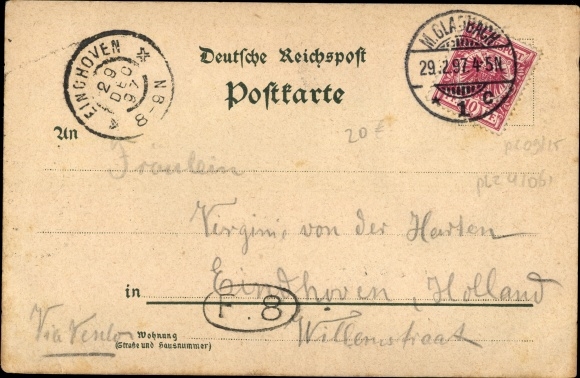 EINDHOVEN
29
DEC
97
N 6-8
Deutsche Reichspost
Postkarte
M. GLADBACH
29.12.97 4-5N
1 c
10
20 €
pl 09/15
An
Fräulein
Virginie von der Harten
in Eindhoven, Holland
F. 8
Willemstraat
Via Venlo
Wohnung
(Straße und Hausnummer)